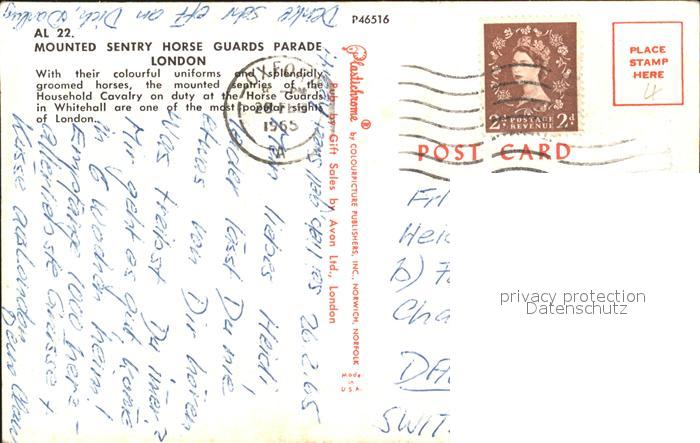 Denke sehr oft an Dich, Darling
P46516
AL 22.
MOUNTED SENTRY HORSE GUARDS PARADE
LONDON
With their colourful uniforms and splendidly
groomed horses, the mounted sentries of the
Household Cavalry on duty at the Horse Guards
in Whitehall are one of the most popular sights
of London.
OXFORD
1965
A
Plastichrome ® by COLOURPICTURE PUBLISHERS, INC., NORWICH, NORFOLK
Pub. by Gift Sales by Avon Ltd., London
Made in U.S.A.
PLACE
STAMP
HERE
4
2d POSTAGE REVENUE 2d
POST CARD
26.2.65
Mein liebes Heidi
lässt Du nie
etwas von Dir hören
Was treibst Du immer?
Mir geht es gut, komme
in 6 Wochen heim!
Empfange 1000 herz-
allerliebste Grüsse +
Küsse aus London
Dein
Hei
b)
Cha
SWIT
privacy protection
Datenschutz